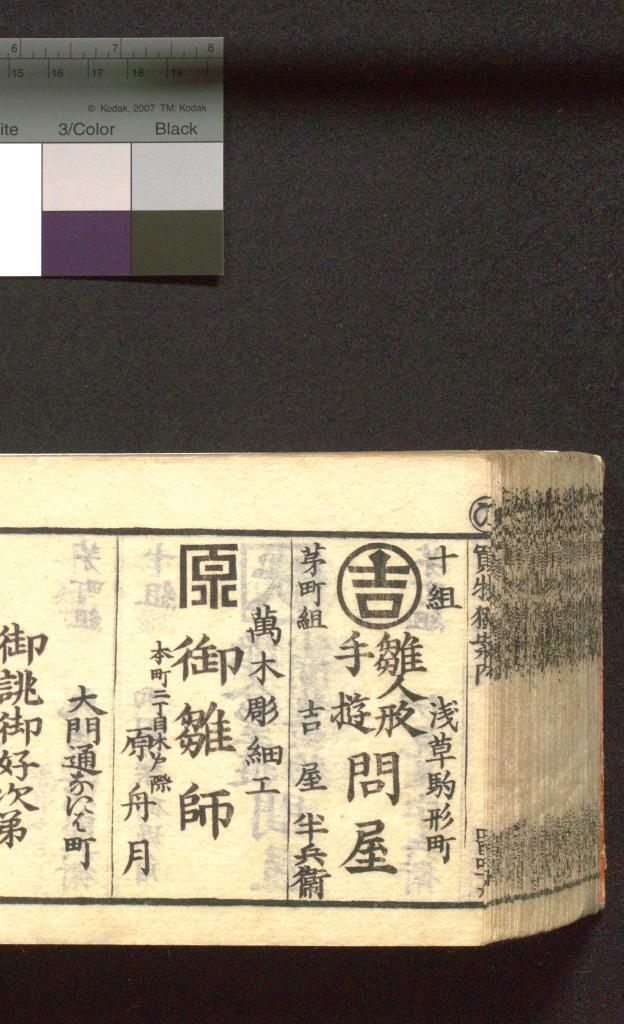 6 7 8
15 16 17 18 19
© Kodak, 2007 TM: Kodak
ite 3/Color Black
十組
浅草駒形町
吉
雛人形
手遊
問屋
茅町組
吉屋半兵衛
萬木彫細工
原
御雛師
本町二丁目木戸際
原舟月
大門通なには町
御誂御好次第